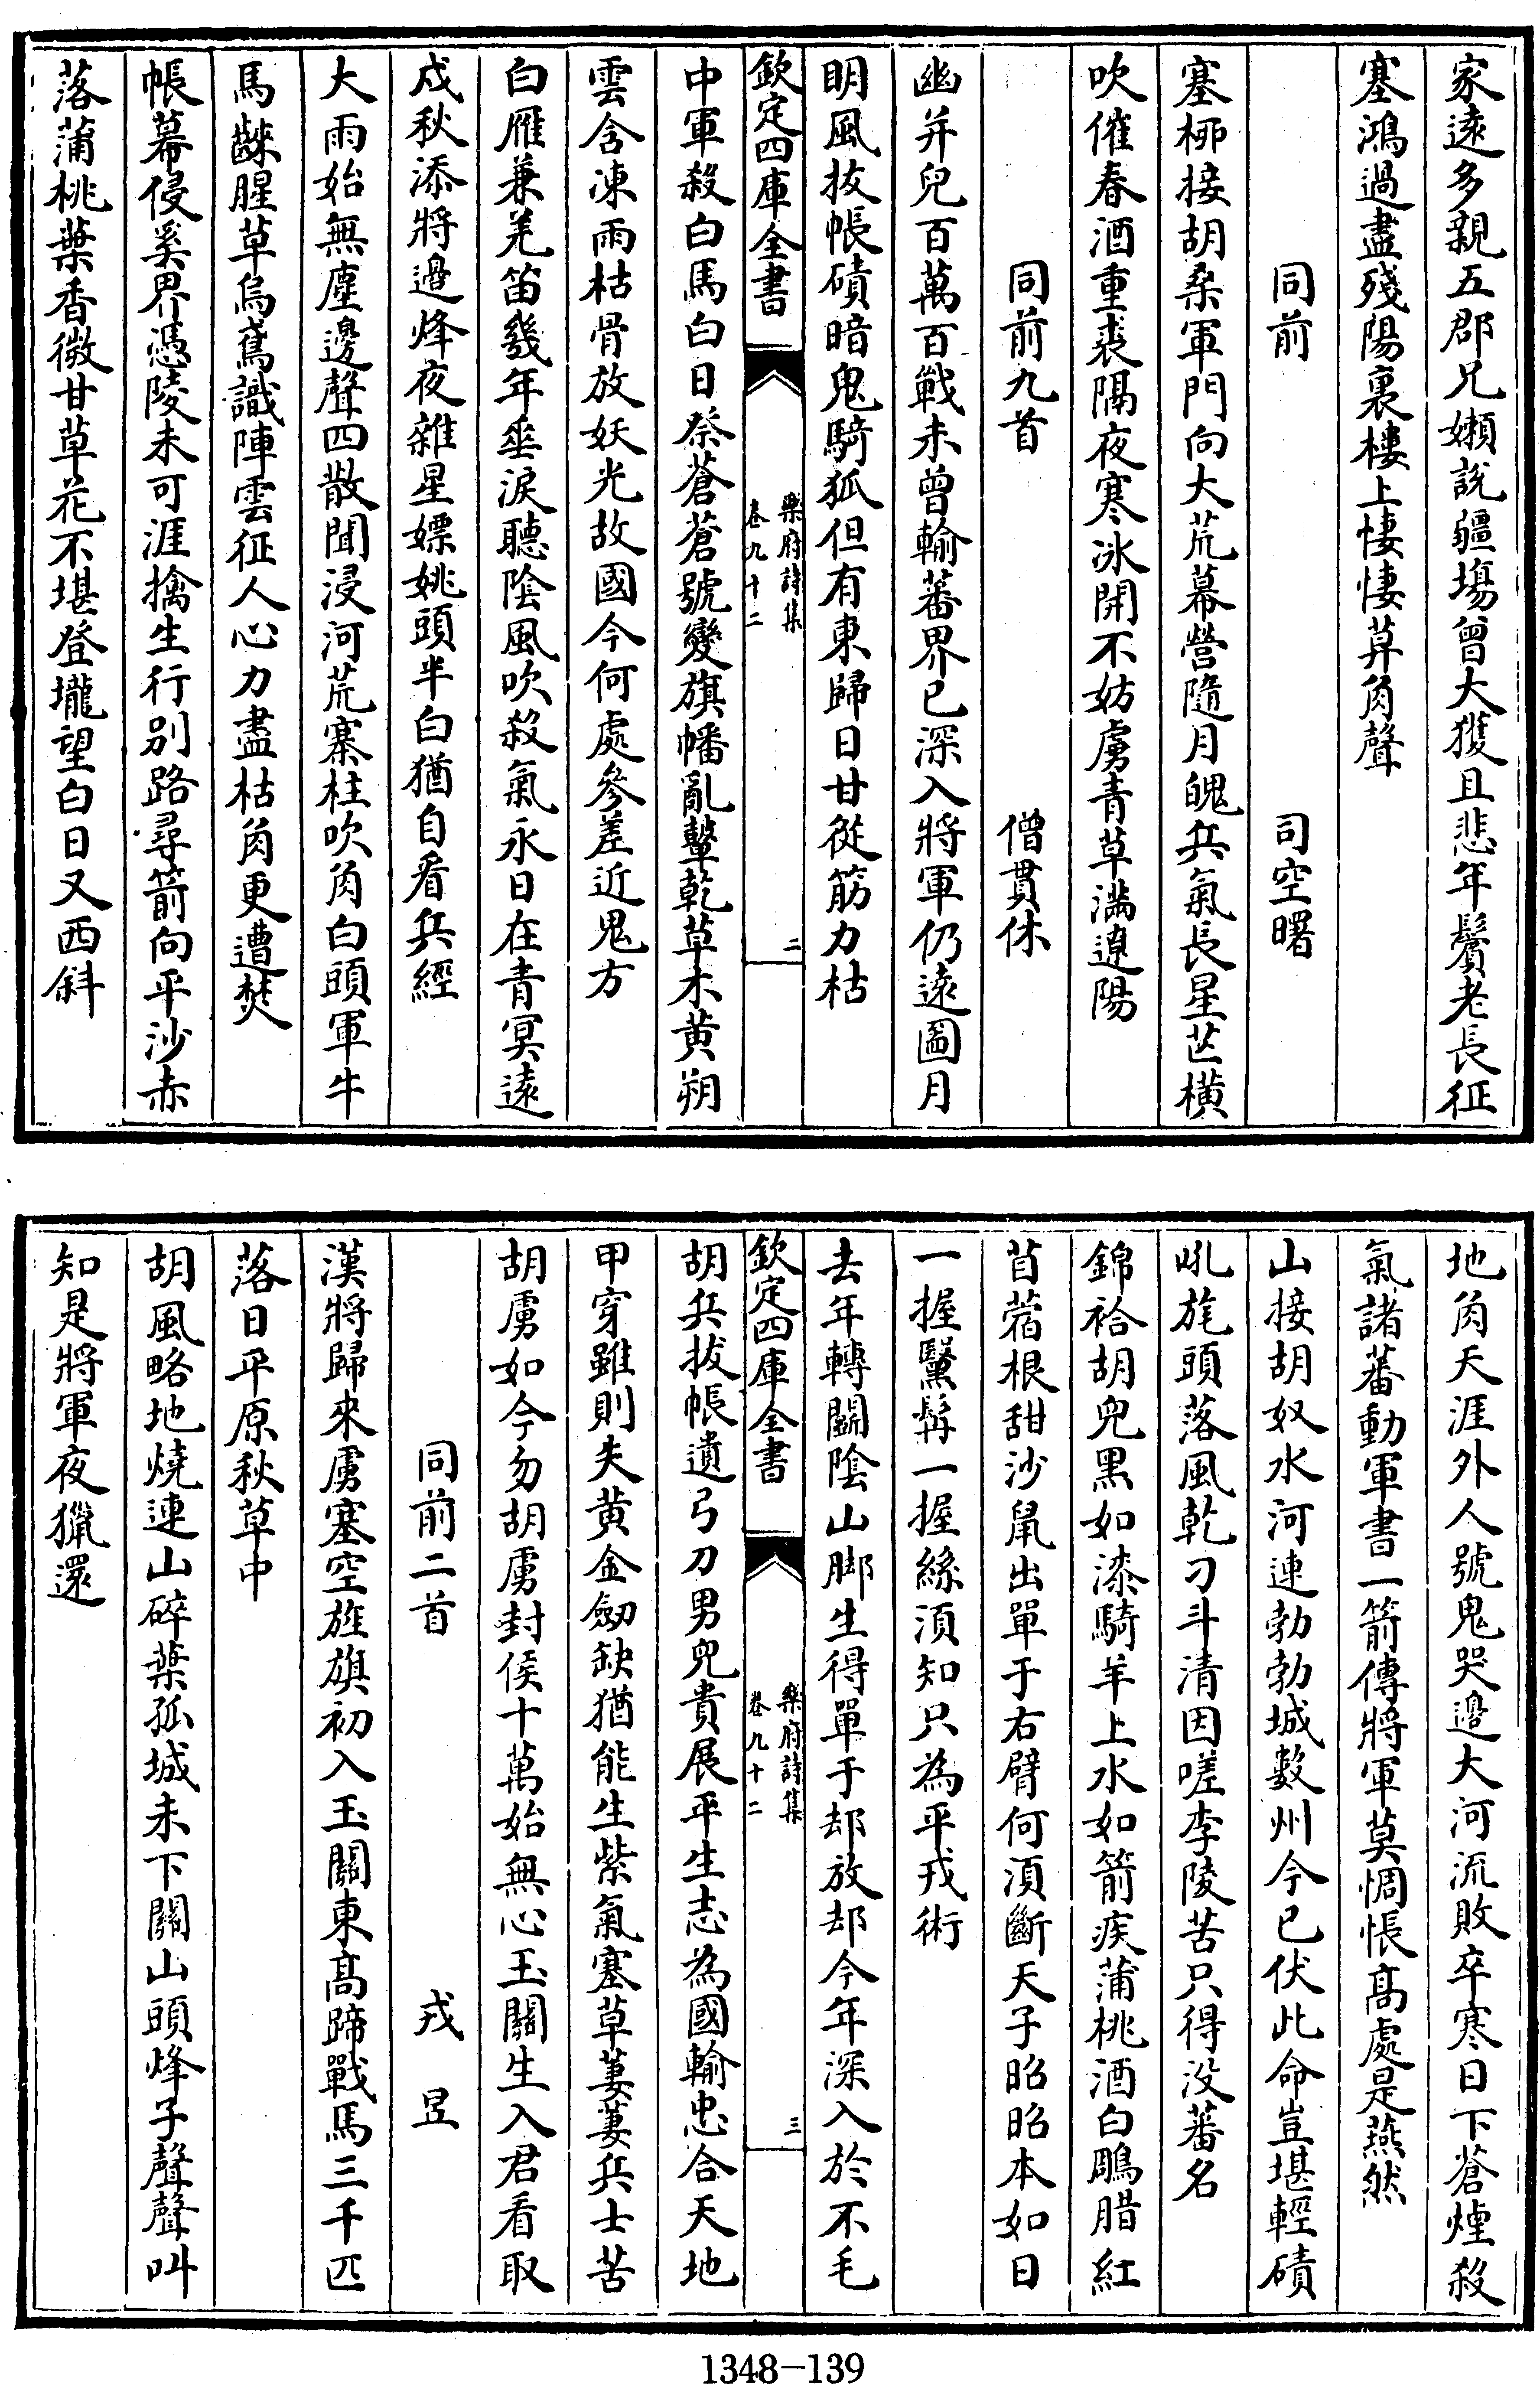 家遠多親五郡兄嬾說疆場曾大獲且悲年鬢老長征
塞鴻過盡殘陽裏樓上悽悽葬角聲
同前 司空曙
塞柳接胡桑軍門向大荒幕營隨月魄兵氣長星芒橫
吹催春酒重裘隔夜寒冰開不妨虜青草滿遼陽
同前九首 僧貫休
幽并兒百萬百戰未曾輸蕃界已深入將軍仍遠圖月
明風拔帳磧暗鬼騎狐但有東歸日甘從筋力枯
欽定四庫全書 樂府詩集 卷九十二 二
中軍殺白馬白日祭蒼蒼號變旗幡亂鼙乾草木黃朔
雲含凍雨枯骨放妖光故國今何處參差近鬼方
白雁兼羌笛幾年垂淚聽陰風吹殺氣永日在青冥遠
戍秋添將邊烽夜雜星嫖姚頭半白猶自看兵經
大雨始無塵邊聲四散聞浸河荒寨柱吹角白頭軍牛
馬齩腥草烏鳶識陣雲征人心力盡枯角更遭焚
帳幕侵奚界憑陵未可涯擒生行別路尋箭向平沙赤
落蒲桃葉香微甘草花不堪登壠望白日又西斜
地角天涯外人號鬼哭邊大河流敗卒寒日下蒼煙殺
氣諸蕃動軍書一箭傳將軍莫惆悵高處是燕然
山接胡奴水河連勃勃城數州今已伏此命豈堪輕磧
吼旄頭落風乾刁斗清因嗟李陵苦只得沒蕃名
錦袷胡兒黑如漆騎羊上水如箭疾蒲桃酒白鵰腊紅
苜蓿根甜沙鼠出單于右臂何須斷天子昭昭本如日
一握黳髯一握絲須知只為平戎術
去年轉鬭陰山腳生得單于却放却今年深入於不毛
欽定四庫全書 樂府詩集 卷九十二 三
胡兵拔帳遺弓刀男兒貴展平生志為國輸忠合天地
甲穿雖則失黃金劒缺猶能生紫氣塞草萋萋兵士苦
胡虜如今勿胡虜封侯十萬始無心玉關生入君看取
同前二首 戎昱
漢將歸來虜塞空旌旗初入玉關東高蹄戰馬三千匹
落日平原秋草中
胡風略地燒連山碎葉孤城未下關山頭烽子聲聲叫
知是將軍夜獵還
1348-139